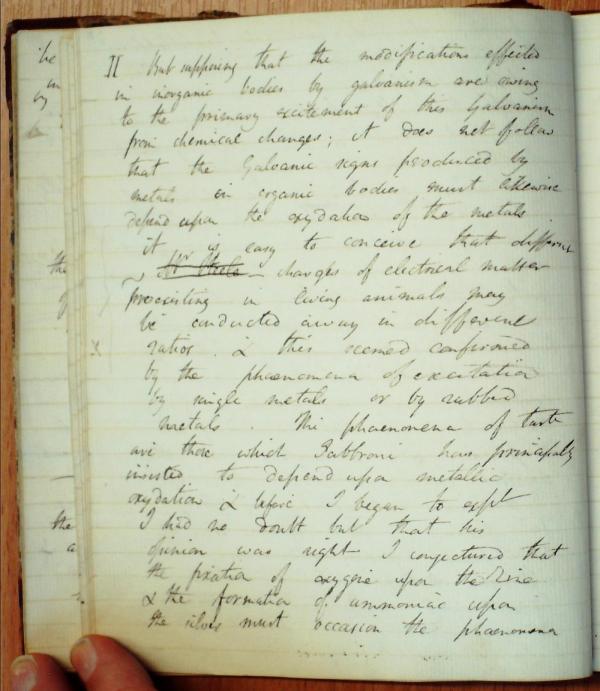 be
in
by
II But supposing that the modifications effected
in inorganic bodies by galvanism are owing
to the primary excitement of this Galvanism
from chemical changes; it does not follow
that the Galvanic signs produced by
metals in organic bodies must likewise
depend upon the oxydation of the metals
it is easy to conceive that different
charges of electrical matter
preexisting in living animals may
be conducted away in different
ratios. & this seemed confirmed
by the phaenomena of excitation
by single metals or by rubbed
metals. The phaenomena of taste
are those which Fabbroni has principally
insisted to depend upon metallic
oxydation & before I began to expt
I had no doubt but that his
opinion was right I conjectured that
the fixation of oxygene upon the Zinc
& the formation of ammoniac upon
the silver must occasion the phaenomena
the
of
the
a